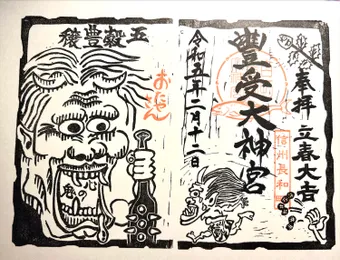 奉拝 立春大吉
豐受大神宮
信州長和町
令和五年二月十二日
五穀豊穣
おたやさん